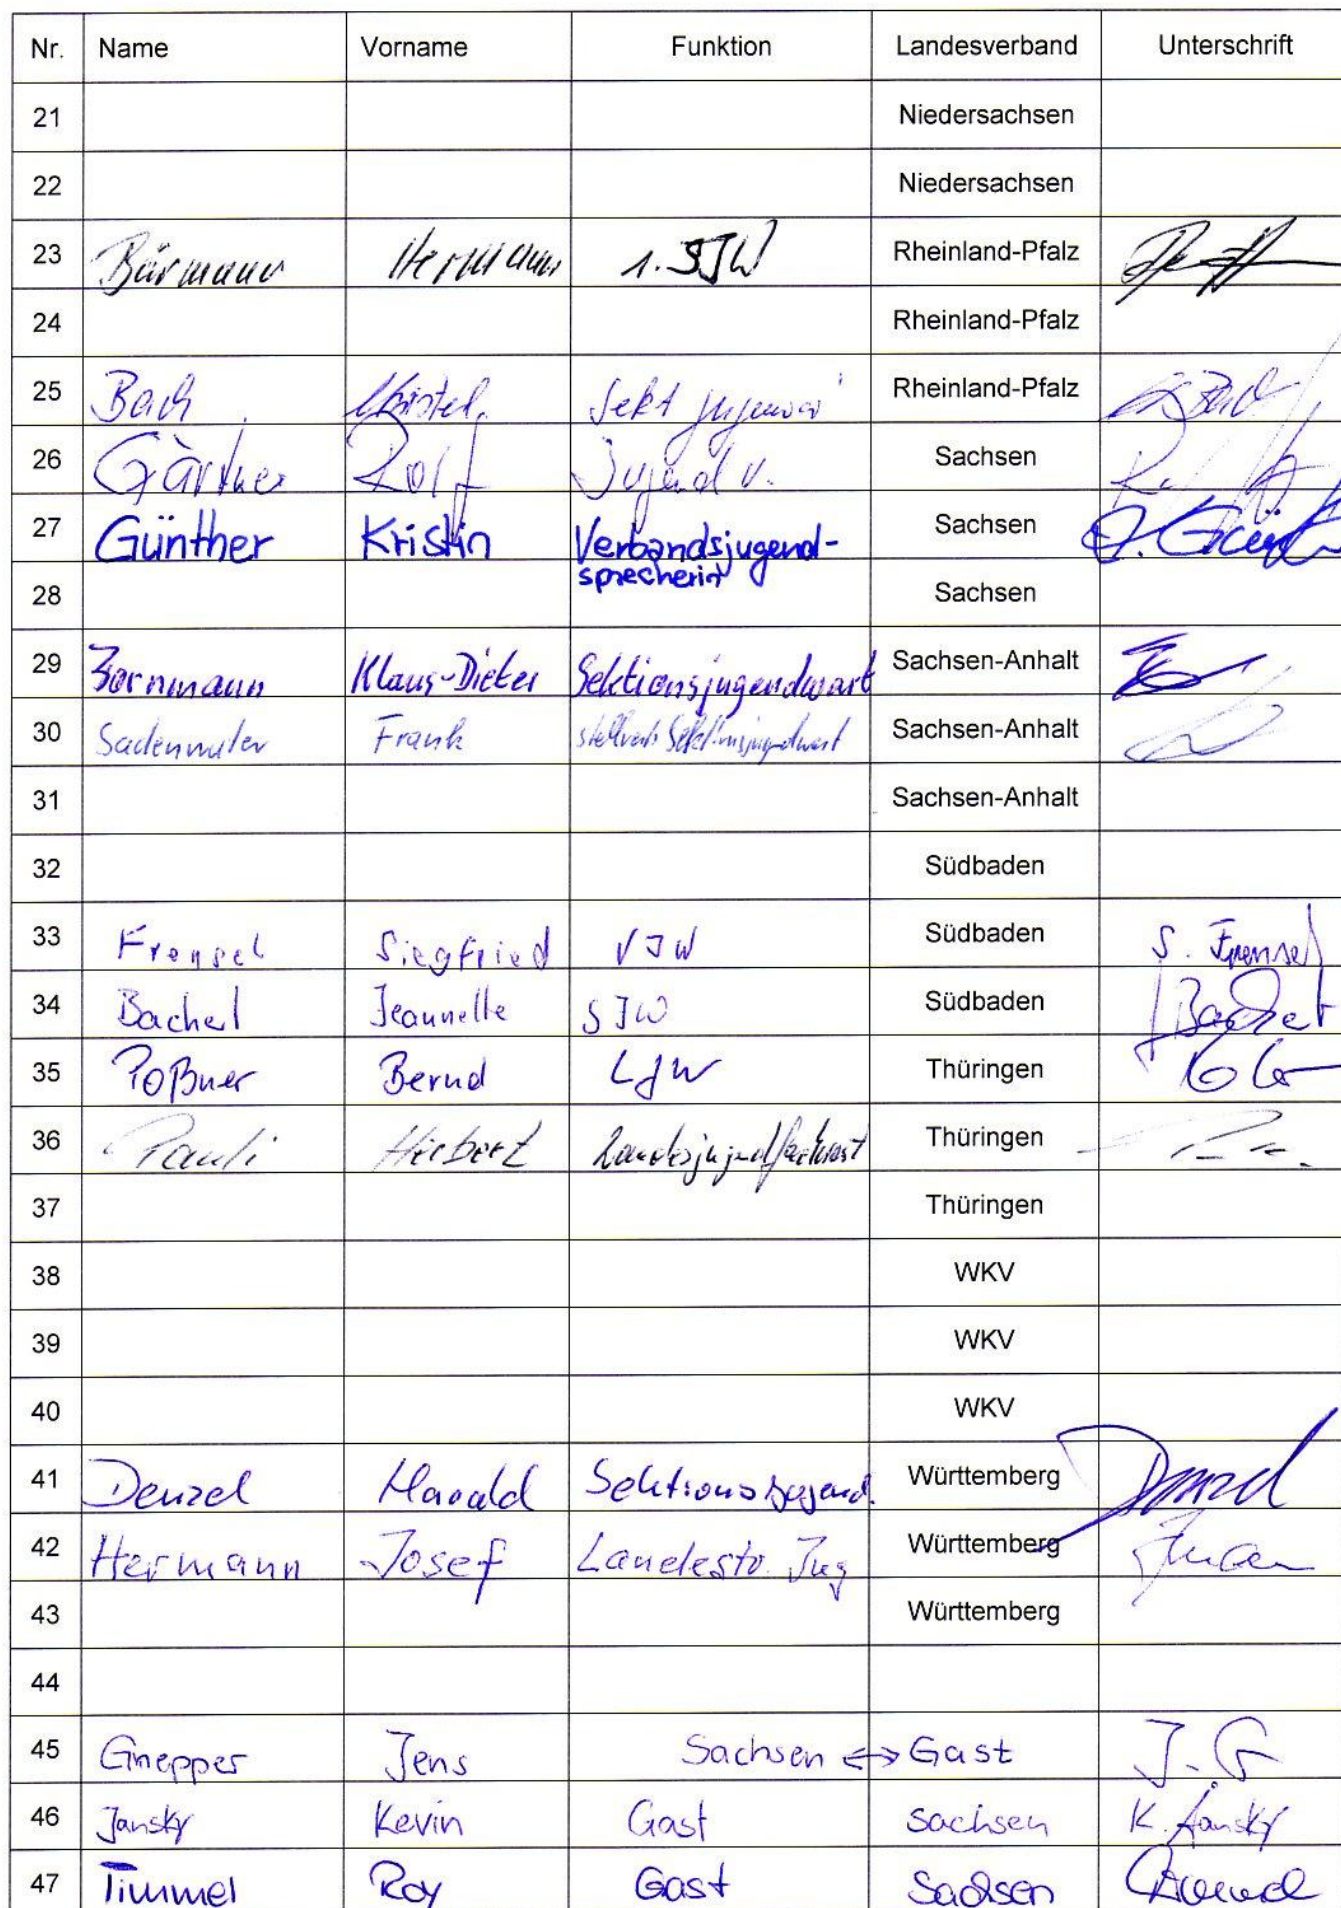 Nr. Name Vorname Funktion Landesverband Unterschrift
21 Niedersachsen
22 Niedersachsen
23 Bärmann Hermann 1. SJW Rheinland-Pfalz
24 Rheinland-Pfalz
25 Bach Christel Rheinland-Pfalz
26 Gärtner Rolf Jugend Sachsen
27 Günther Kristin Verbandsjugend- Sachsen
sprecherin
28 Sachsen
29 Klaus-Dieter Sektionsjugendwart Sachsen-Anhalt
30 Frank Sachsen-Anhalt
31 Sachsen-Anhalt
32 Südbaden
33 Frensel Siegfried VJW Südbaden S. Frensel
34 Bachel Jeannette SJW Südbaden
35 Poßner Bernd LJW Thüringen
36 Pauli Herbert Thüringen
37 Thüringen
38 WKV
39 WKV
40 WKV
41 Denzel Harald Sektionsjugend. Württemberg Denzel
42 Hermann Josef Württemberg
43 Württemberg
44
45 Gnepper Jens Sachsen ↔ Gast J. G
46 Jansky Kevin Gast Sachsen K. Jansky
47 Timmel Roy Gast Sachsen